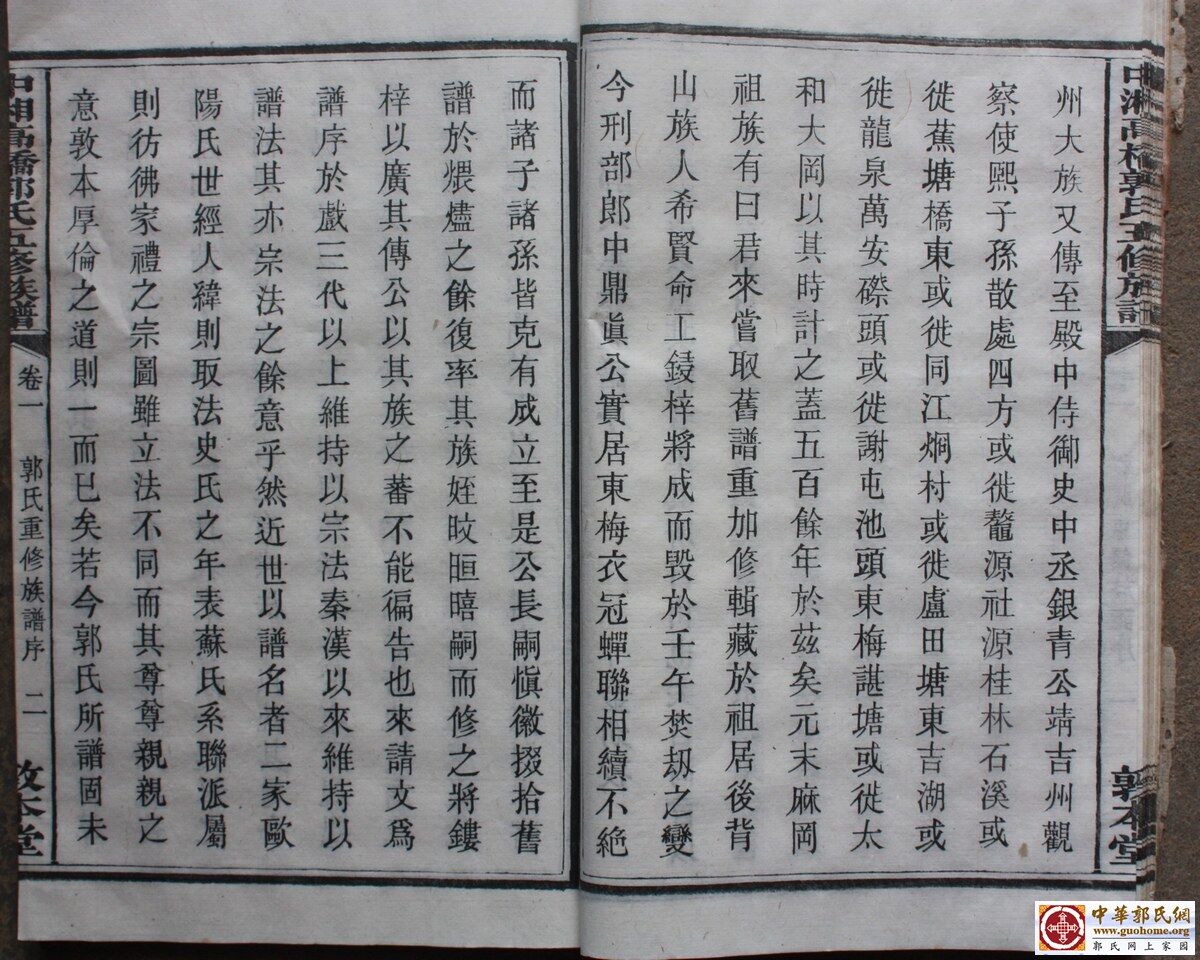 中湘高橋郭氏五修族譜
敦本堂
州大族又傳至殿中侍御史中丞銀青公靖吉州觀
察使熙子孫散處四方或徙鼇源社源桂林石溪或
徙蕉塘橋東或徙同江烔村或徙盧田塘東吉湖或
徙龍泉萬安磜頭或徙謝屯池頭東梅諶塘或徙太
和大岡以其時計之蓋五百餘年於茲矣元末麻岡
祖族有曰君來嘗取舊譜重加修輯藏於祖居後背
山族人希賢命工鋟梓將成而毀於壬午焚刼之變
今刑部郎中鼎眞公實居東梅衣冠蟬聯相續不絶
而諸子諸孫皆克有成立至是公長嗣愼徽掇拾舊
譜於煨燼之餘復率其族姪旼晅暿嗣而修之將鏤
梓以廣其傳公以其族之蕃不能徧告也來請文爲
譜序於戲三代以上維持以宗法秦漢以來維持以
譜法其亦宗法之餘意乎然近世以譜名者二家歐
陽氏世經人緯則取法史氏之年表蘇氏系聯派屬
則彷彿家禮之宗圖雖立法不同而其尊尊親親之
意敦本厚倫之道則一而已矣若今郭氏所譜固未
中湘高橋郭氏五修族譜
卷一
郭氏重修族譜序
二
敦本堂
中華郭氏網
www.guohome.org
郭氏網上家園